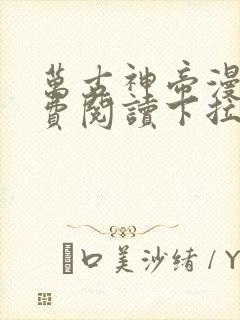 萬古神帝漫
費閱讀下拉
口美沙绪/Y